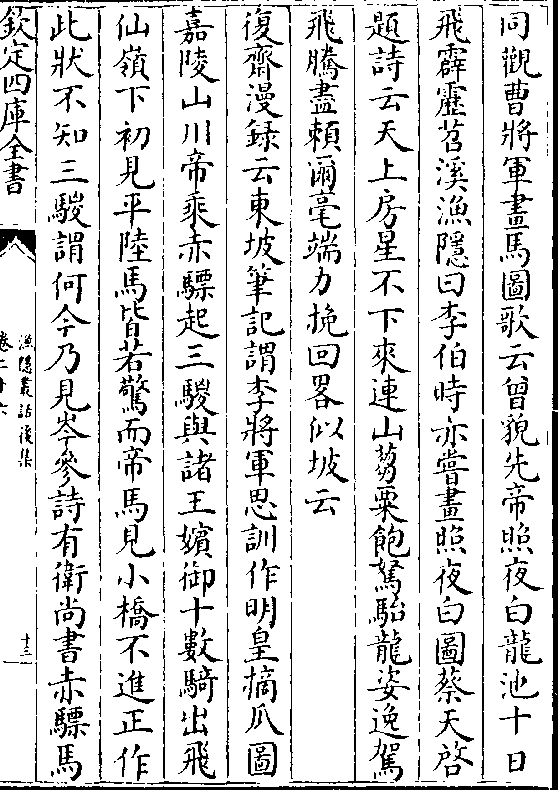 同觀曹將軍畫馬圖歌云曾貌先帝照夜白龍池十日
飛霹靂苕溪漁隱曰李伯時亦嘗畫照夜白圖蔡天啓
題詩云天上房星不下來連山蒭粟飽駑駘龍姿逸駕
飛騰盡頼爾毫端力挽回畧似坡云
復齋漫録云東坡筆記謂李將軍思訓作明皇摘瓜圖
嘉陵山川帝乘赤驃起三騣與諸王嬪御十數騎出飛
仙嶺下初見平陸馬皆若驚而帝馬見小橋不進正作
此狀不知三騣謂何今乃見岑參詩有衛尚書赤驃馬
欽定四庫全書
漁隱叢話後集
卷二十六
十三